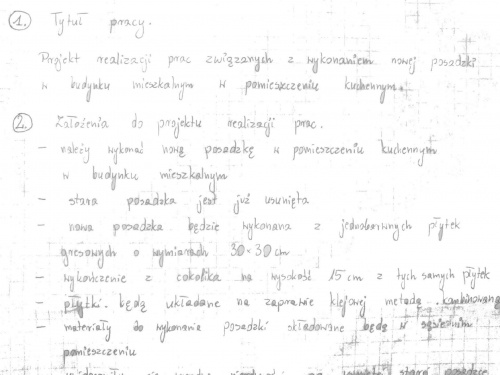 1. Tytuł pracy.
Projekt realizacji prac związanych z wykonaniem nowej posadzki
w budynku mieszkalnym w pomieszczeniu kuchennym.
2. Założenia do projektu realizacji prac.
- należy wykonać nową posadzkę w pomieszczeniu kuchennym
w budynku mieszkalnym
- stara posadzka jest już usunięta
- nowa posadzka będzie wykonana z jednobarwnych płytek
gresowych o wymiarach 30×30 cm
- wykończenie z cokolika na wysokość 15 cm z tych samych płytek
- płytki będą układane na zaprawie klejowej metodą kombinowaną
- materiały do wykonania posadzki składowane będą w sąsiednim
pomieszczeniu
stara posadzce